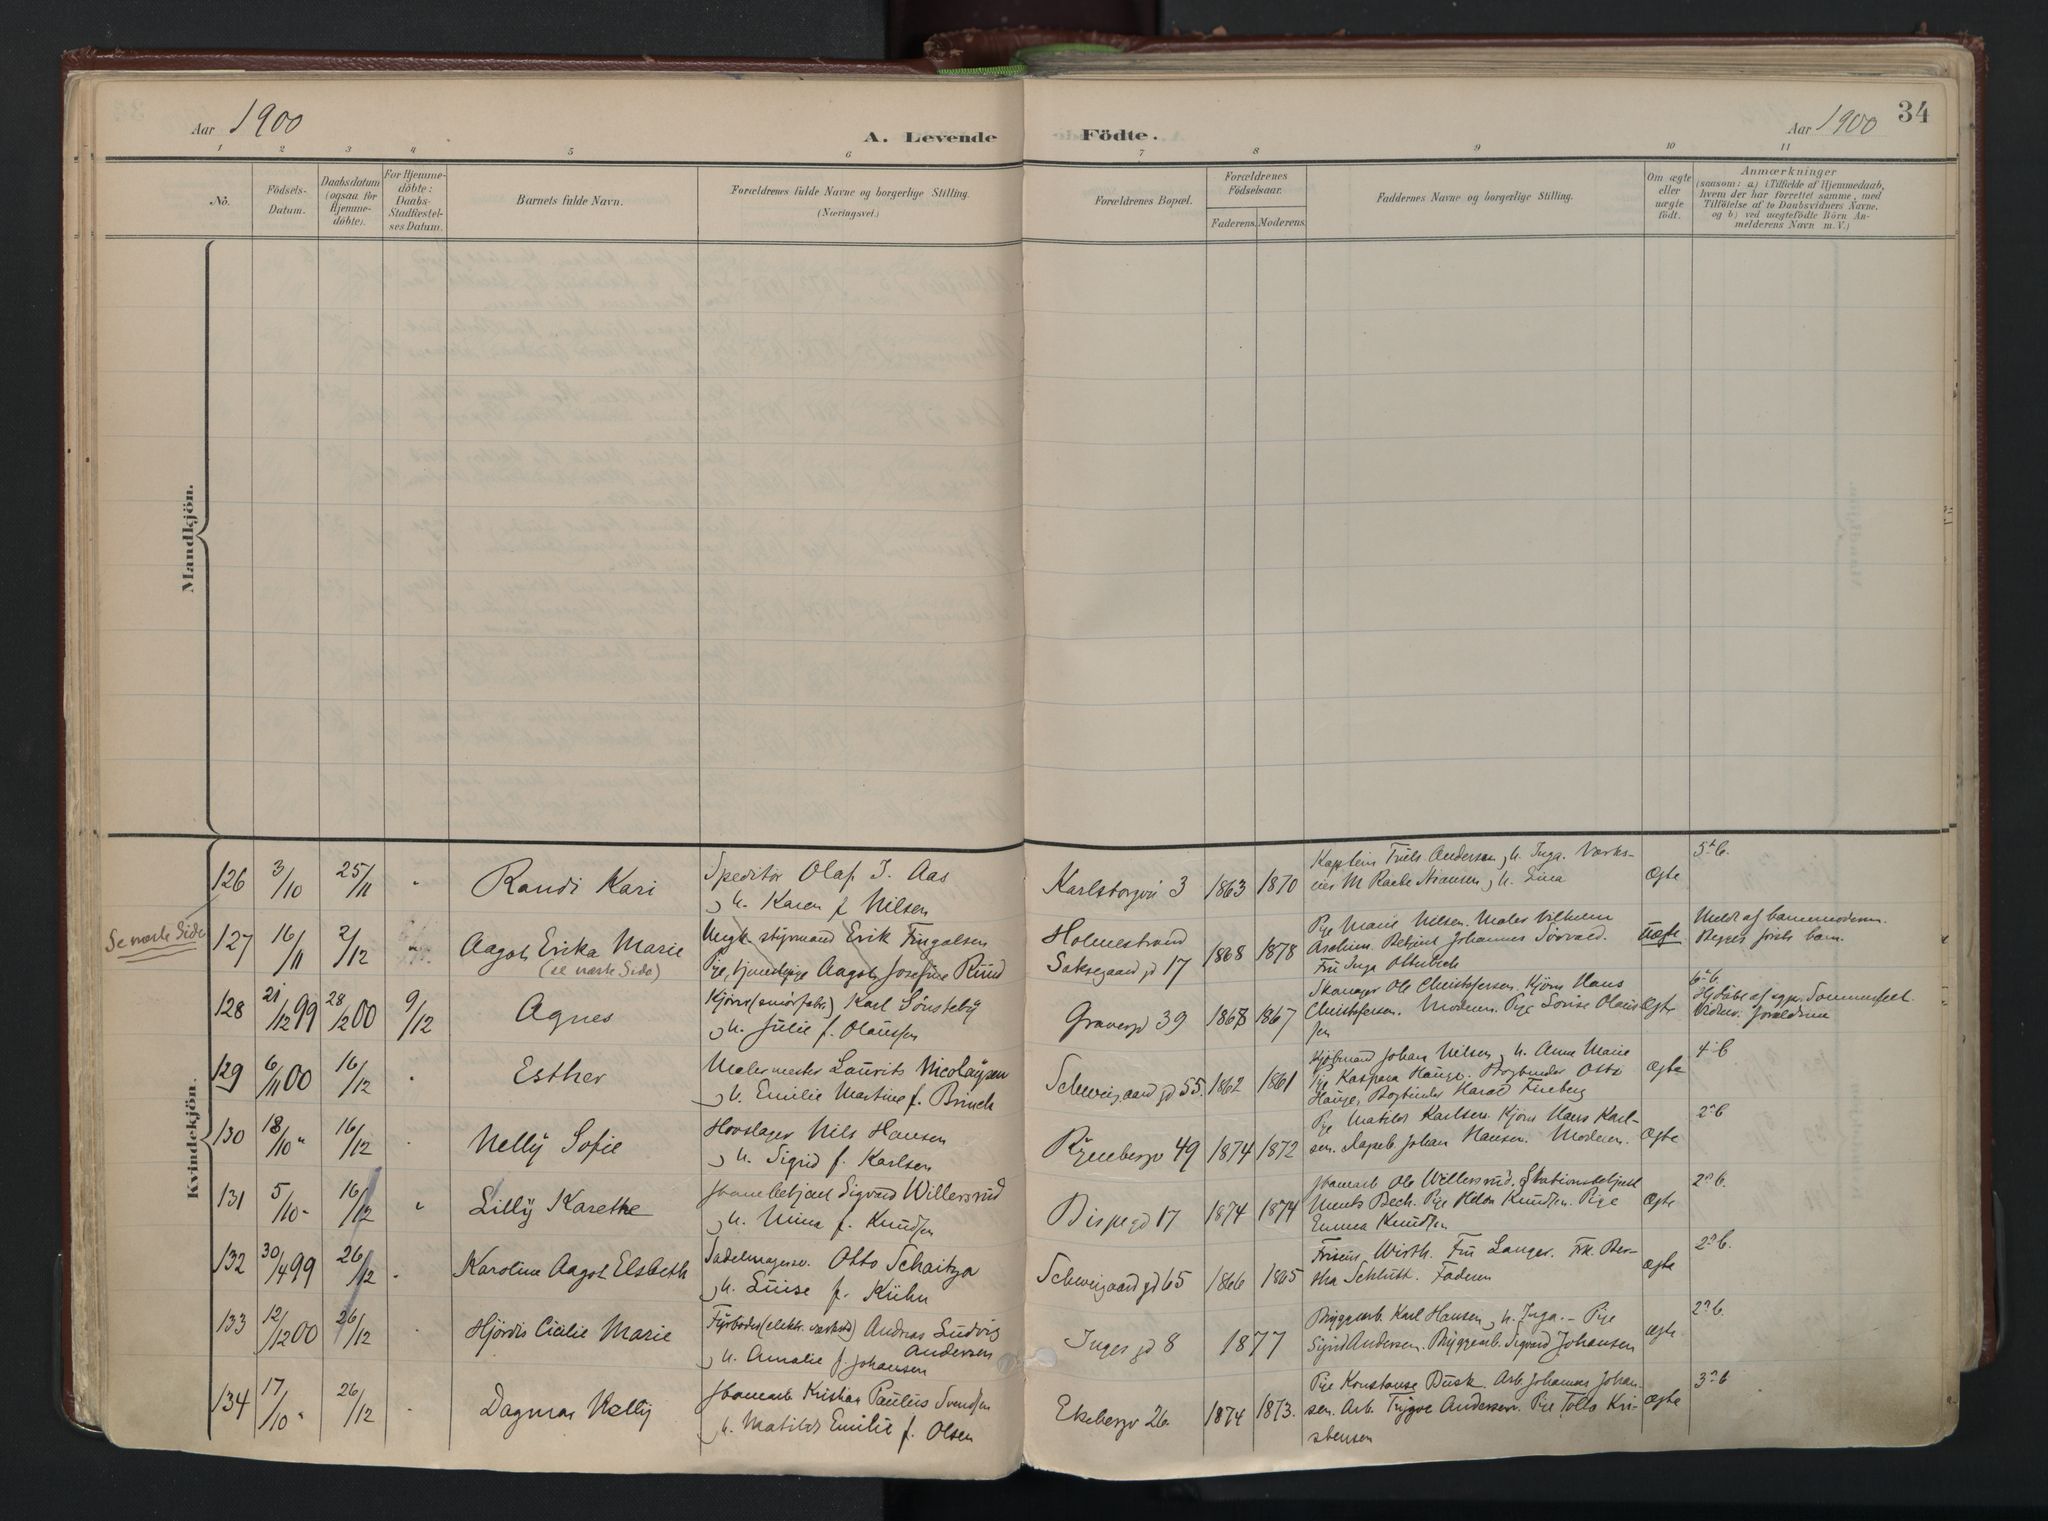 Aar 1900
A. Levende Födte.
Aar 1900
34
1 2 3 4 5 6 7 8 9 10 11
No.
Födsels-
Datum.
Daabsdatum
(ogsaa for
Hjemme-
döbte).
For Hjemme-
döbte:
Daabs-
Stadfæstel-
ses Datum.
Barnets fulde Navn.
Forældrenes fulde Navne og borgerlige Stilling.
(Næringsvei.)
Forældrenes Bopæl.
Forældrenes
Födselsaar.
Faderens. Moderens.
Faddernes Navne og borgerlige Stilling.
Om ægte
eller
uægte
födt.
Anmærkninger
(saasom: a) i Tilfælde af Hjemmedaab,
hvem der har forrettet samme, med
Tilföielse af to Daabsvidners Navne,
og b) ved uægtefödte Börn An-
melderens Navn m. V.)
Mandkjön.
Kvindekjön.
126 3/10 25/11 Randi Kari
Speditør Olaf J. Aas
h. Karen f. Nilsen
Karlsborgvei 3 1863 1870
Kaptein Andersen, h. Inga.
Ægte
Se næste Side
127 16/11 2/12 Aagot Erika Marie
(se næste Side)
Ungk. styrmand Erik
Pige, tjenestepige Aagot Josefine Ruud
Holmestrand
Saksegaard gd 17 1868 1878
Pige Marie Nilsen. Maler Vilhelm
Johannes
Fru Inga
Uægte
Meldt af barnemoderen.
Begges første barn.
128 21/12 99 28/2 00 9/12 Agnes
Kjører (smørfabr.) Karl Sønsteby
h. Julie f. Olaussen
Gravergd 39 1868 1867
Ole Christofersen. Kjører Hans
Christofersen. Moderen. Pige Lovise Olaus-
sen
Ægte
6te b.
Hj.døbt af sgpr. Sommerfelt.
Vidner. forældrene
129 6/11 00 16/12 Esther
Malermester Laurits Nicolaysen
h. Emilie Martine f. Brinch
Schweigaard gd 55. 1862 1861
Kjøbmand Johan Nilsen, h. Anne Marie
Pige Kaspara Hauge. Bogbinder Otto
Hauge, Bogbinder Harald
Ægte
4de b
130 18/10 " 16/12 Nelly Sofie
Hovslager Nils Hansen
h. Sigrid f. Karlsen
Ryenbergv 49 1874 1872
Pige Matilde Karlsen. Kjører Hans Karl-
sen. Johan Hansen. Moderen.
Ægte
2det b
131 5/10 - 16/12 Lilly Karethe
Sigvard Willersrud
h. Nina f. Knudsen
Bispegd 17 1874 1874
Ole Willersrud. Stationsbetjent
Bech. Pige Knudsen. Pige
Emma Knudsen
Ægte
2det b.
132 30/4 99 26/12 Karoline Aagot Elsbeth
Sadelmagersv. Otto Schaitza
h. Luise f. Kühn
Schweigaard gd 65 1866 1865
Frisør Wirth. Fru Langer. Frk. Ber-
tha Schlütt. Faderen
Ægte
2det b.
133 12/12 00 26/12 Hjørdis Cicilie Marie
Fyrbøder (elektr. værksted) Andreas Ludvig
Andersen
h. Amalie f. Johansen
Inges gd 8 1877
Bryggearb. Karl Hansen, h. Inga. - Pige
Sigrid Andersen. Bryggearb. Sigvard Johansen
Ægte
2det b.
134 17/10 " 26/12 Dagmar Nelly
Kristian Paulus Svendsen
h. Matilde Emilie f. Olsen
Ekebergv 26 1874 1873.
Pige Konstanse Busk. Arb. Johannes Johan-
sen. Arb. Trygve Andersen. Pige Kri-
stensen
Ægte
3die b